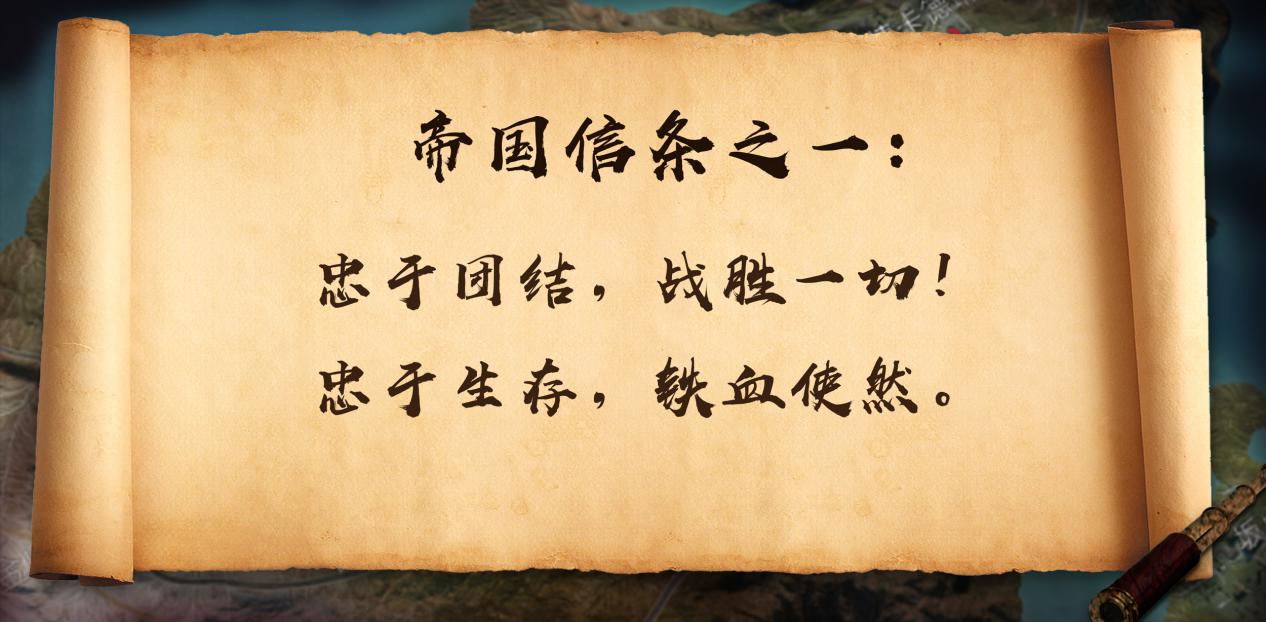 帝国信条之一：
忠于团结，战胜一切！
忠于生存，铁血使然。